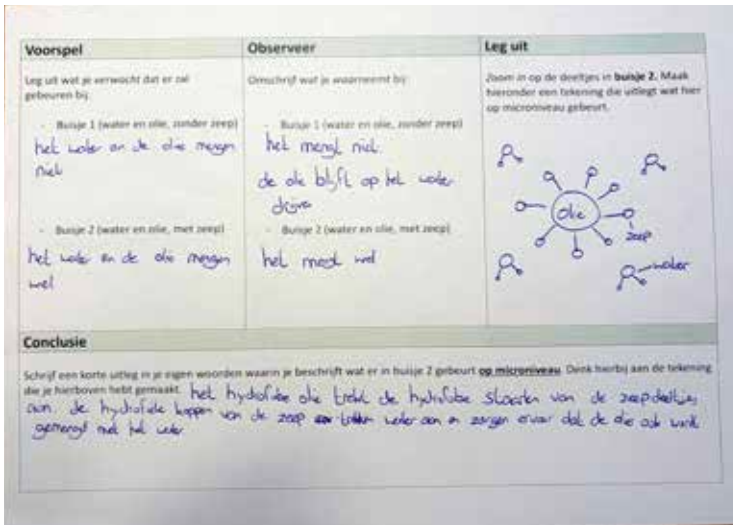 Voorspel
Leg uit wat je verwacht dat er zal
gebeuren bij:
- Buisje 1 (water en olie, zonder zeep)
het water en de olie mengen
niet
- Buisje 2 (water en olie, met zeep)
het water en de olie mengen
wel
Observeer
Omschrijf wat je waarneemt bij:
- Buisje 1 (water en olie, zonder zeep)
het mengt niet.
de olie blijft op het water
drijven
- Buisje 2 (water en olie, met zeep)
het mengt wel
Leg uit
Zoom in op de deeltjes in buisje 2. Maak
hieronder een tekening die uitlegt wat hier
op microniveau gebeurt.
olie
zeep
water
Conclusie
Schrijf een korte uitleg in je eigen woorden waarin je beschrijft wat er in buisje 2 gebeurt op microniveau. Denk hierbij aan de tekening
die je hierboven hebt gemaakt. het hydrofobe olie trekt de hydrofobe staarten van de zeepdeeltjes
aan. de hydrofiele koppen van de zeep trekken water aan en zorgen ervoor dat de olie ook wordt
gemengd met het water